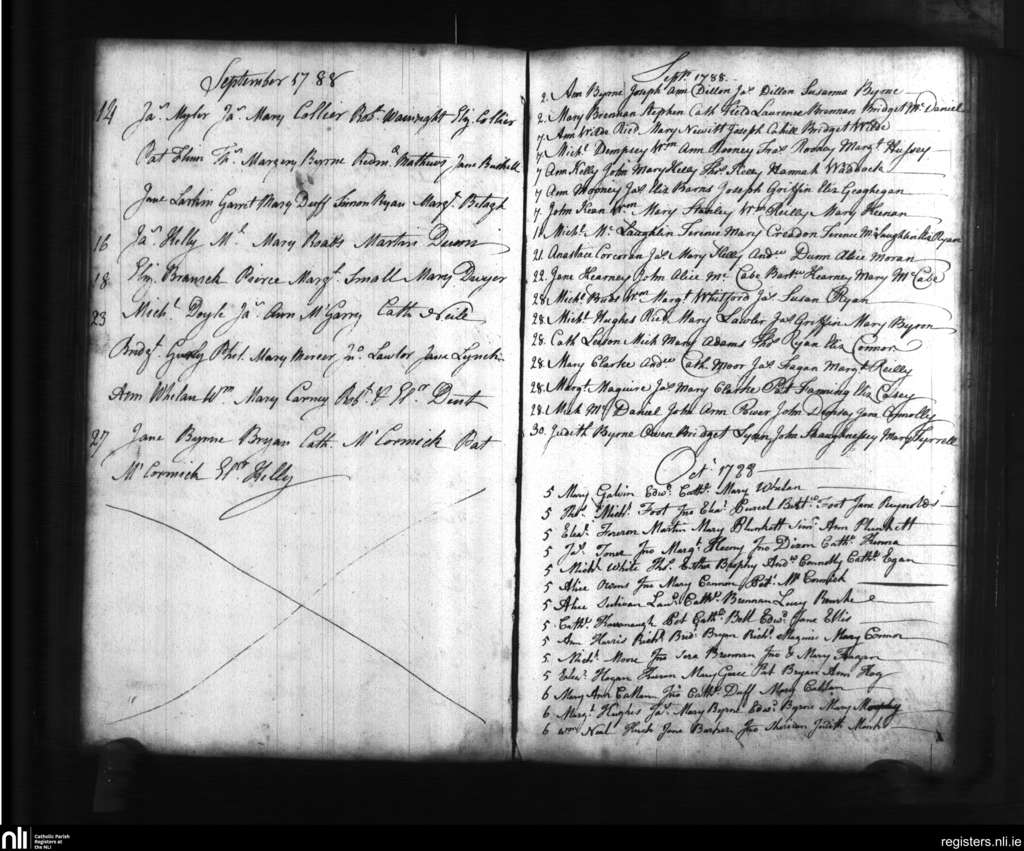 September 1788
14 Jas. Myler Jas. Mary Collier Robt. Wainright Eliz. Collier
Pat Flinn Ths. Margery Byrne Redmd. Mathews Jane Bushell
Jane Larkin Garret Mary Duff Simon Ryan Margt. Betagh
16 Jas. Kelly Mt. Mary Roach Martin Dunn
18 Eliz. Pierce Margt. Small Mary Dwyer
23 Michl. Doyle Jas. Ann McGarry Cath. Neile
Bridgt. Phel. Mary Mercer Jno. Lawlor Jane Lynch
Ann Whelan Wm. Mary Carney Robt. & Elr. Dent
27 Jane Byrne Bryan Cath. McCormick Pat
McCormick Elr. Kelly
Septr. 1788
2. Ann Byrne Joseph Ann Dillon Jas. Dillon Susanna Byrne
2. Mary Brennan Stephen Cath Field Laurence Brennan Bridget McDaniel
7 Ann Wilde Richd. Mary Newitt Joseph Cahill Bridget Wilde
7 Michl. Dempsey Wm. Ann Rooney Fras. Rooney Margt. Hussey
7 Ann Kelly John Mary Kelly Thos. Kelly Hannah
7 Ann Mooney Jas. Eliz Barns Joseph Griffin Eliz Geoghegan
7 John Kean Wm. Mary Stanley Wm. Reilly Mary Heenan
Michl. McLaughlin Terence Mary Creadon Terence McLaughlin Eliz Ryan
21. Anastace Corcoran Jas. Mary Kelly Andw. Dunn Alice Moran
22. Jane Kearney John Alice McCabe Bartw. Kearney Mary McCabe
28. Michl. Wm. Margt. Whitford Jas. Susan Ryan
28. Michl. Hughes Richd. Mary Lawler Jas. Griffin Mary Byrne
28. Cath Leeson Mich Mary Adams Thos. Ryan Eliz Connor
28. Mary Clarke Andw. Cath. Moor Jas. Fagan Margt. Reilly
28. Margt. Maguire Jas. Mary Clarke Pat Fanning Eliz Casey
28. Mich McDaniel John Ann Power John Depsey Jane Connolly
30. Judith Byrne Owen Bridget Lynin John Shaughnessey Mary Tyrrell
Octr. 1788
5 Mary Galvin Edwd. Cathe. Mary Whelan
5 Thos. Michl. Foot Jno Elear. Purcel Bartw. Foot Jane Reynolds
5 Elear. Martin Mary Plunkett Simn. Ann Plunkett
5 Jas. Toner Jno Margt. Keeny Jno Dixon Cathe. Kenna
5 Michl. White Thos. Esther Brophy Andw. Connolly Cathe. Egan
5 Alice Owens Jno Mary Cannon Patk. McCormick
5 Alice Sulivan Lawe. Cathe. Brennan Lucy Rourke
5 Cathe. Kavanaugh Pat Cathe. Bell Edwd. Jane Ellis
5 Ann Harris Richd. Brid. Byrn Richd. Maguire Mary Connor
5 Michl. Moore Jno Sera Brennan Jno & Mary Fhagan
5 Elear. Hogan Mary Grace Pat Bryan Ann Hoy
6 Mary Ann Callan Jno Cathe. Duff Mary Callan
6 Margt. Hughes Jas. Mary Byrne Edwd. Byrne Mary Murphy
6 Wm. Neal Jane Barker Jno Sheridan Judith Monks
nli Catholic Parish
Registers at
the NLI
registers.nli.ie